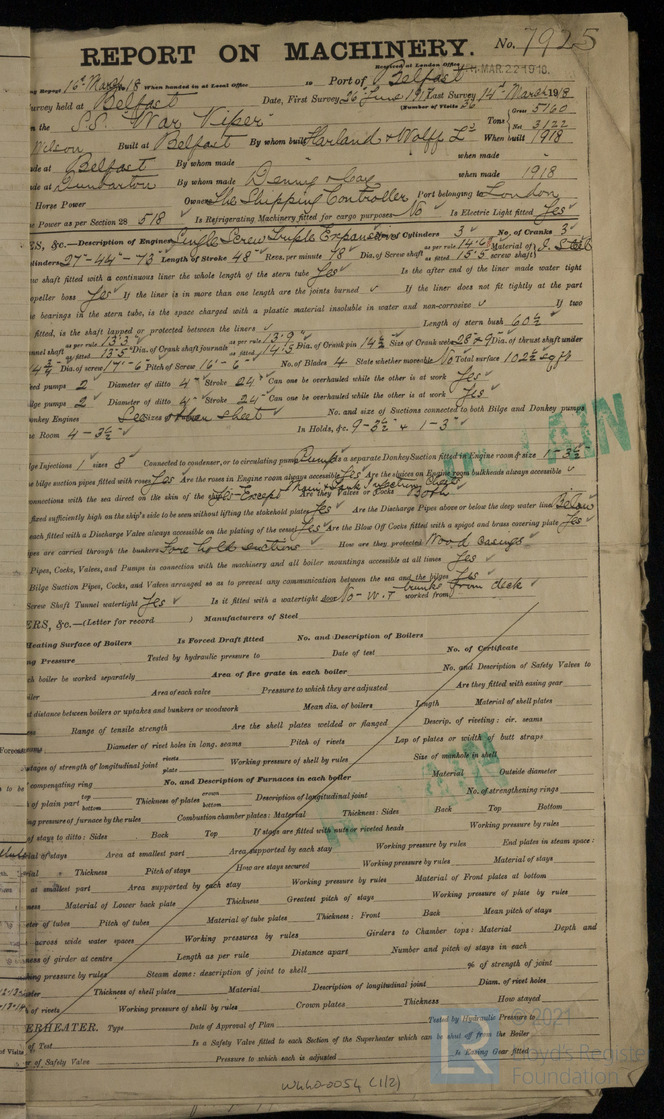 REPORT ON MACHINERY. No. 7925
Received at London Office MAR 22 1918
Report 16th March 18 When handed in at Local Office 10 Port of Belfast
Survey held at Belfast Date, First Survey 26th June 1917 Last Survey 14th March 1918
(Number of Visits 26
on the S.S. "War Viper" Tons Gross 5160 Net 3122
Wilson Built at Belfast By whom built Harland & Wolff Ld When built 1918
made at Belfast By whom made when made
made at Dumbarton By whom made Denny & Coy when made 1918
Horse Power Owners The Shipping Controller Port belonging to London
Power as per Section 28 518 Is Refrigerating Machinery fitted for cargo purposes No Is Electric Light fitted Yes
ES, &c.—Description of Engines Single Screw Triple Expansion No. of Cylinders 3 No. of Cranks 3
27"-44"-73 Length of Stroke 48" Revs. per minute 78 Dia. of Screw shaft as per rule 14.6 as fitted 15.5 Material of screw shaft
shaft fitted with a continuous liner the whole length of the stern tube Yes Is the after end of the liner made water tight
propeller boss Yes If the liner is in more than one length are the joints burned If the liner does not fit tightly at the part
bearings in the stern tube, is the space charged with a plastic material insoluble in water and non-corrosive If two
fitted, is the shaft lapped or protected between the liners Length of stern bush 60½
shaft as per rule 13.3" as fitted 13.5" Dia. of Crank shaft journals as per rule 13.9" as fitted 14.5 Dia. of Crank pin 14½ Size of Crank webs 28×9 Dia. of thrust shaft under
Dia. of screw 17'-6 Pitch of Screw 16'-6" No. of Blades 4 State whether moveable No Total surface 102½ sq ft
pumps 2 Diameter of ditto 4" Stroke 24" Can one be overhauled while the other is at work Yes
pumps 2 Diameter of ditto 4" Stroke 24" Can one be overhauled while the other is at work Yes
Donkey Engines See Sizes of other sheet No. and size of Suctions connected to both Bilge and Donkey pumps
Room 4-3½" In Holds, &c. 9-3½" & 1-3"
Bilge Injections 1 sizes 8" Connected to condenser, or to circulating pump Pump Is a separate Donkey Suction fitted in Engine room & size 1-3½
bilge suction pipes fitted with roses Yes Are the roses in Engine room always accessible Yes Are the sluices on Engine room bulkheads always accessible
connections with the sea direct on the skin of the ship Yes-Except Main & Tank injection Chests Are they Valves or Cocks Both
fixed sufficiently high on the ship's side to be seen without lifting the stokehold plates Yes Are the Discharge Pipes above or below the deep water line Below
each fitted with a Discharge Valve always accessible on the plating of the vessel Yes Are the Blow Off Cocks fitted with a spigot and brass covering plate Yes
pipes are carried through the bunkers Fore hold suctions How are they protected Wood casings
Pipes, Cocks, Valves, and Pumps in connection with the machinery and all boiler mountings accessible at all times Yes
Bilge Suction Pipes, Cocks, and Valves arranged so as to prevent any communication between the sea and the bilges Yes
Screw Shaft Tunnel watertight Yes Is it fitted with a watertight door No - W.T trunks from deck worked from
ERS, &c.—(Letter for record ) Manufacturers of Steel
Heating Surface of Boilers Is Forced Draft fitted No. and Description of Boilers
Pressure Tested by hydraulic pressure to Date of test No. of Certificate
boiler be worked separately Area of fire grate in each boiler No. and Description of Safety Valves to
boiler Area of each valve Pressure to which they are adjusted Are they fitted with easing gear
distance between boilers or uptakes and bunkers or woodwork Mean dia. of boilers Length Material of shell plates
Range of tensile strength Are the shell plates welded or flanged Descrip. of riveting: cir. seams
seams Diameter of rivet holes in long. seams Pitch of rivets Lap of plates or width of butt straps
percentages of strength of longitudinal joint rivets plate Working pressure of shell by rules Size of manhole in shell
compensating ring No. and Description of Furnaces in each boiler Material Outside diameter
of plain part top bottom Thickness of plates crown bottom Description of longitudinal joint No. of strengthening rings
pressure of furnace by the rules Combustion chamber plates: Material Thickness: Sides Back Top Bottom
of stays to ditto: Sides Back Top If stays are fitted with nuts or riveted heads Working pressure by rules
of stays Area at smallest part Area supported by each stay Working pressure by rules End plates in steam space:
Thickness Pitch of stays How are stays secured Working pressure by rules Material of stays
at smallest part Area supported by each stay Working pressure by rules Material of Front plates at bottom
Material of Lower back plate Thickness Greatest pitch of stays Working pressure of plate by rules
of tubes Pitch of tubes Material of tube plates Thickness: Front Back Mean pitch of stays
across wide water spaces Working pressures by rules Girders to Chamber tops: Material Depth and
of girder at centre Length as per rule Distance apart Number and pitch of stays in each
pressure by rules Steam dome: description of joint to shell % of strength of joint
Thickness of shell plates Material Description of longitudinal joint Diam. of rivet holes
of rivets Working pressure of shell by rules Crown plates Thickness How stayed
ERHEATER. Type Date of Approval of Plan Tested by Hydraulic Pressure to
of Test Is a Safety Valve fitted to each Section of the Superheater which can be shut off from the Boiler
of Safety Valve Pressure to which each is adjusted Is Easing Gear fitted
2021
Lloyd's Register
Foundation
W440-0054 (1/2)